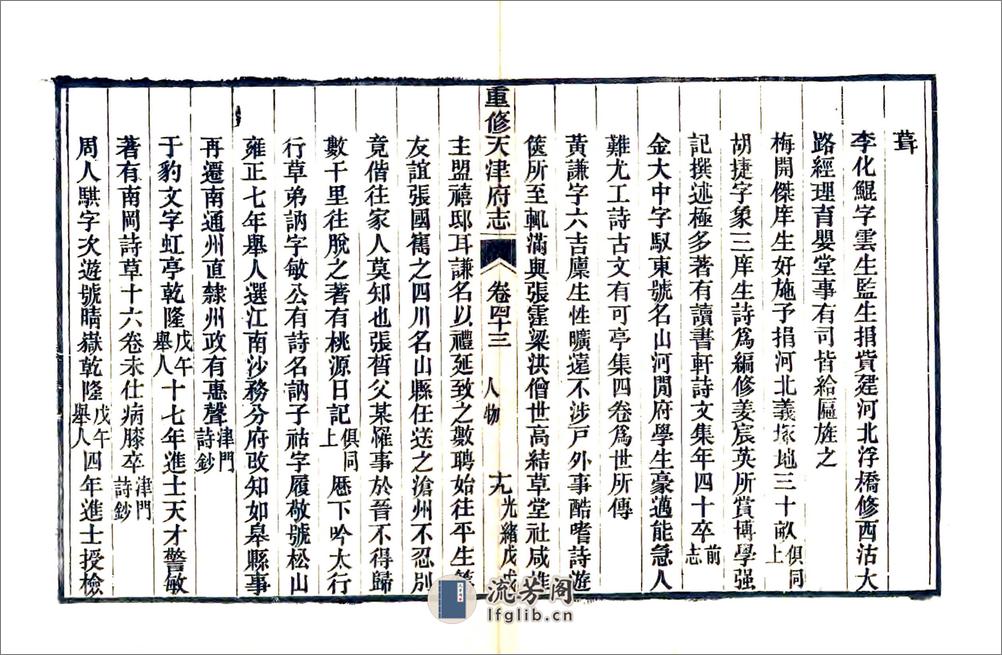 葺
李化鯤字雲生監生捐貲建河北浮橋修西沽大
路經理育嬰堂事有司皆給匾旌之
梅開傑庠生好施予捐河北義塚地三十畝俱同上
胡捷字象三庠生詩爲編修姜宸英所賞博學强
記撰述極多著有讀書軒詩文集年四十卒前志
金大中字馭東號名山河閒府學生豪邁能急人
難尤工詩古文有可亭集四卷爲世所傳
黃謙字六吉廩生性曠遠不涉戶外事酷嗜詩遊
篋所至輒滿與張霔梁洪僧世高結草堂社咸推
重修天津府志 卷四十三 人物 十九 光緒戊戌
主盟禧邸耳謙名以禮延致之數聘始往平生篤
友誼張國雋之四川名山縣任送之滄州不忍別
竟偕往家人莫知也張晢父某罹事於晉不得歸
數千里往脫之著有桃源日記俱同上 歷下吟太行
行草弟訥字敏公有詩名訥子祜字履敬號松山
雍正七年舉人選江南沙務分府改知如皋縣事
再遷南通州直隸州政有惠聲津門詩鈔
于豹文字虹亭乾隆戊午舉人十七年進士天才警敏
著有南岡詩草十六卷未仕病膝卒津門詩鈔
周人騏字次遊號晴嶽乾隆戊午舉人四年進士授檢
流芳阁
lfglib.cn